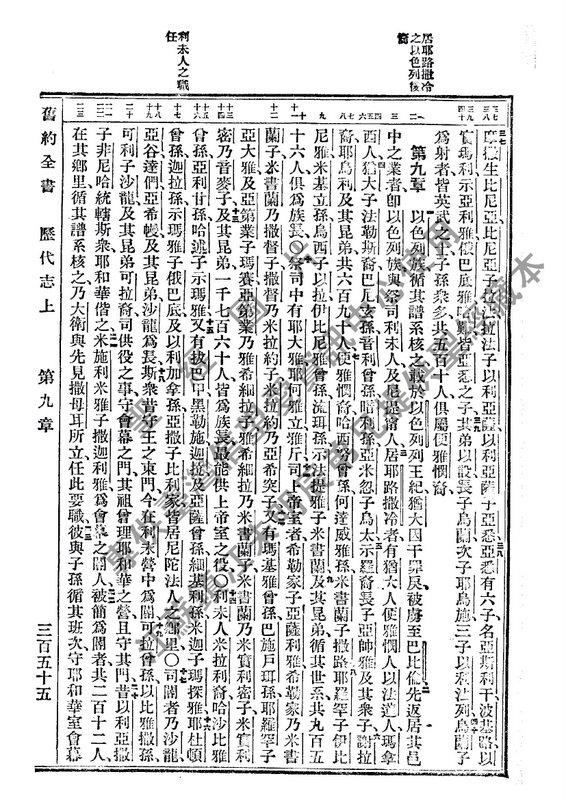 居耶路撒冷
之以色列後
裔
利未人之職
任
生比尼亞比尼亞子拉法拉法子以利亞薩以利亞薩子亞悉亞悉有六子名亞斯利干波基路以
實瑪利示亞利雅俄巴底雅哈難皆亞悉之子其弟以設長子烏蘭次子耶烏施三子以利法列烏蘭子
爲射者皆英武之士子孫衆多共五百十人俱屬便雅憫裔
第九章 以色列族循其譜系核之載於以色列列王紀猶大因干罪反被虜至巴比倫先返居其邑
中之業者卽以色列族與祭司利未人及尼提甯人居耶路撒冷者有猶大人便雅憫人以法蓮人瑪拿
西人猶大子法勒斯裔巴尼玄孫音利曾孫暗利孫亞米忽子烏太示羅裔長子亞帥雅及其衆子謝拉
裔耶烏利及其昆弟共六百九十人便雅憫裔哈西努曾孫何達威雅孫米書蘭子撒路耶羅罕子伊比
尼雅米基立孫烏西子以拉伊比尼雅曾孫流珥孫示法提雅子米書蘭及其昆弟循其世系共九百五
十六人俱爲族長〇祭司中有耶大雅耶何雅立雅斤司上帝室者希勒家子亞薩利雅希勒家乃米書
蘭子米書蘭乃撒督子撒督乃米拉約子米拉約乃亞希突子又有瑪基雅曾孫巴施戶珥孫耶羅罕子
亞大雅及亞第業子瑪賽亞第業乃雅希細拉子雅希細拉乃米書蘭子米書蘭乃米實利密子米實利
密乃音麥子及其昆弟一千七百六十人皆爲族長最能供上帝室之役〇利未人米拉利裔哈沙比雅
曾孫亞利甘孫哈述子示瑪雅又有拔巴甲黑勒施迦拉及亞薩曾孫細基利孫米迦子瑪探雅耶杜頓
曾孫迦拉孫示瑪雅子俄巴底及以利加拿孫亞撒子比利家皆居尼陀法人之鄕里〇司閽者乃沙龍
亞谷達們亞希幔及其昆弟沙龍爲長斯衆昔守王之東門今在利未營中爲閽可拉曾孫以比雅撒孫
可利子沙龍及其昆弟可拉裔司供役之事守會幕之門其祖曾理耶和華之營且守其門昔以利亞撒
子非尼哈統轄斯衆耶和華偕之米施利米雅子撒迦利雅爲會幕之閽人被簡爲閽者共二百十二人
在其鄕里循其譜系核之乃大衛與先見撒母耳所立任此要職彼與子孫循其班次守耶和華室會幕
舊約全書 歷代志上 第九章 三百五十五